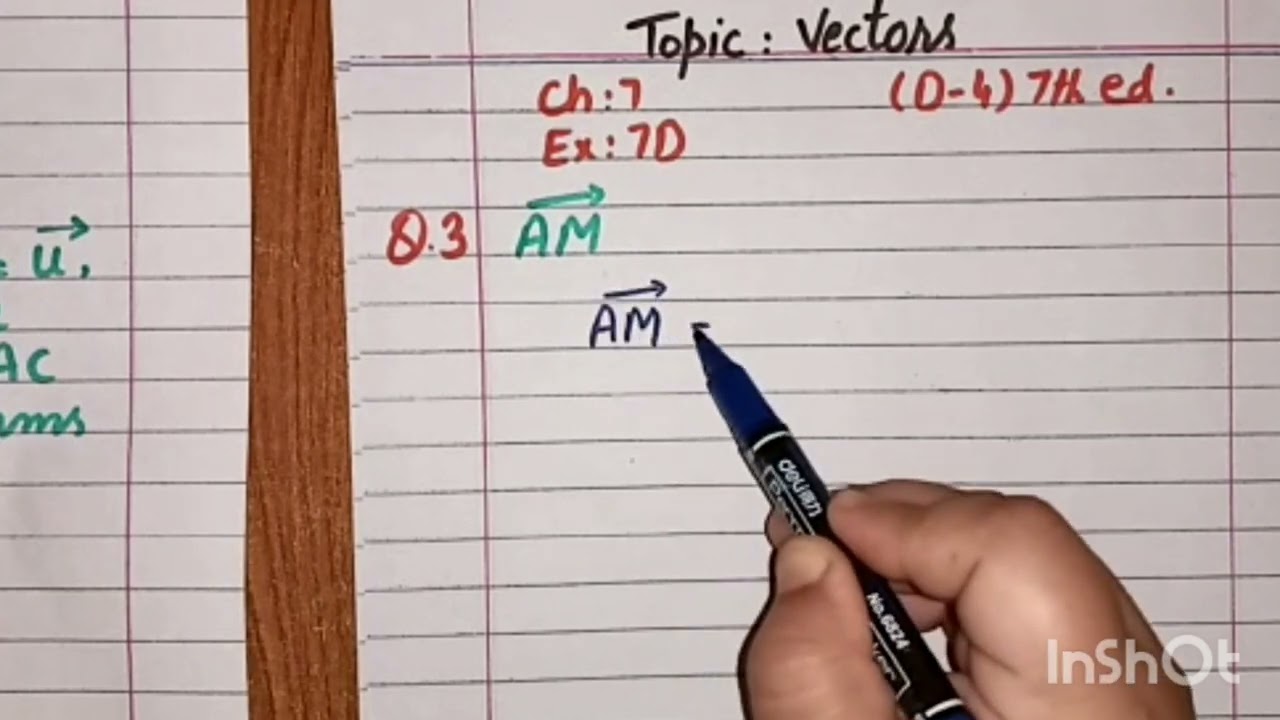 Topic : Vectors
Ch : 7 (D-4) 7th ed.
Ex : 7D
Q.3 AM
AM
u,
AC
deli
No.6824
InShOt